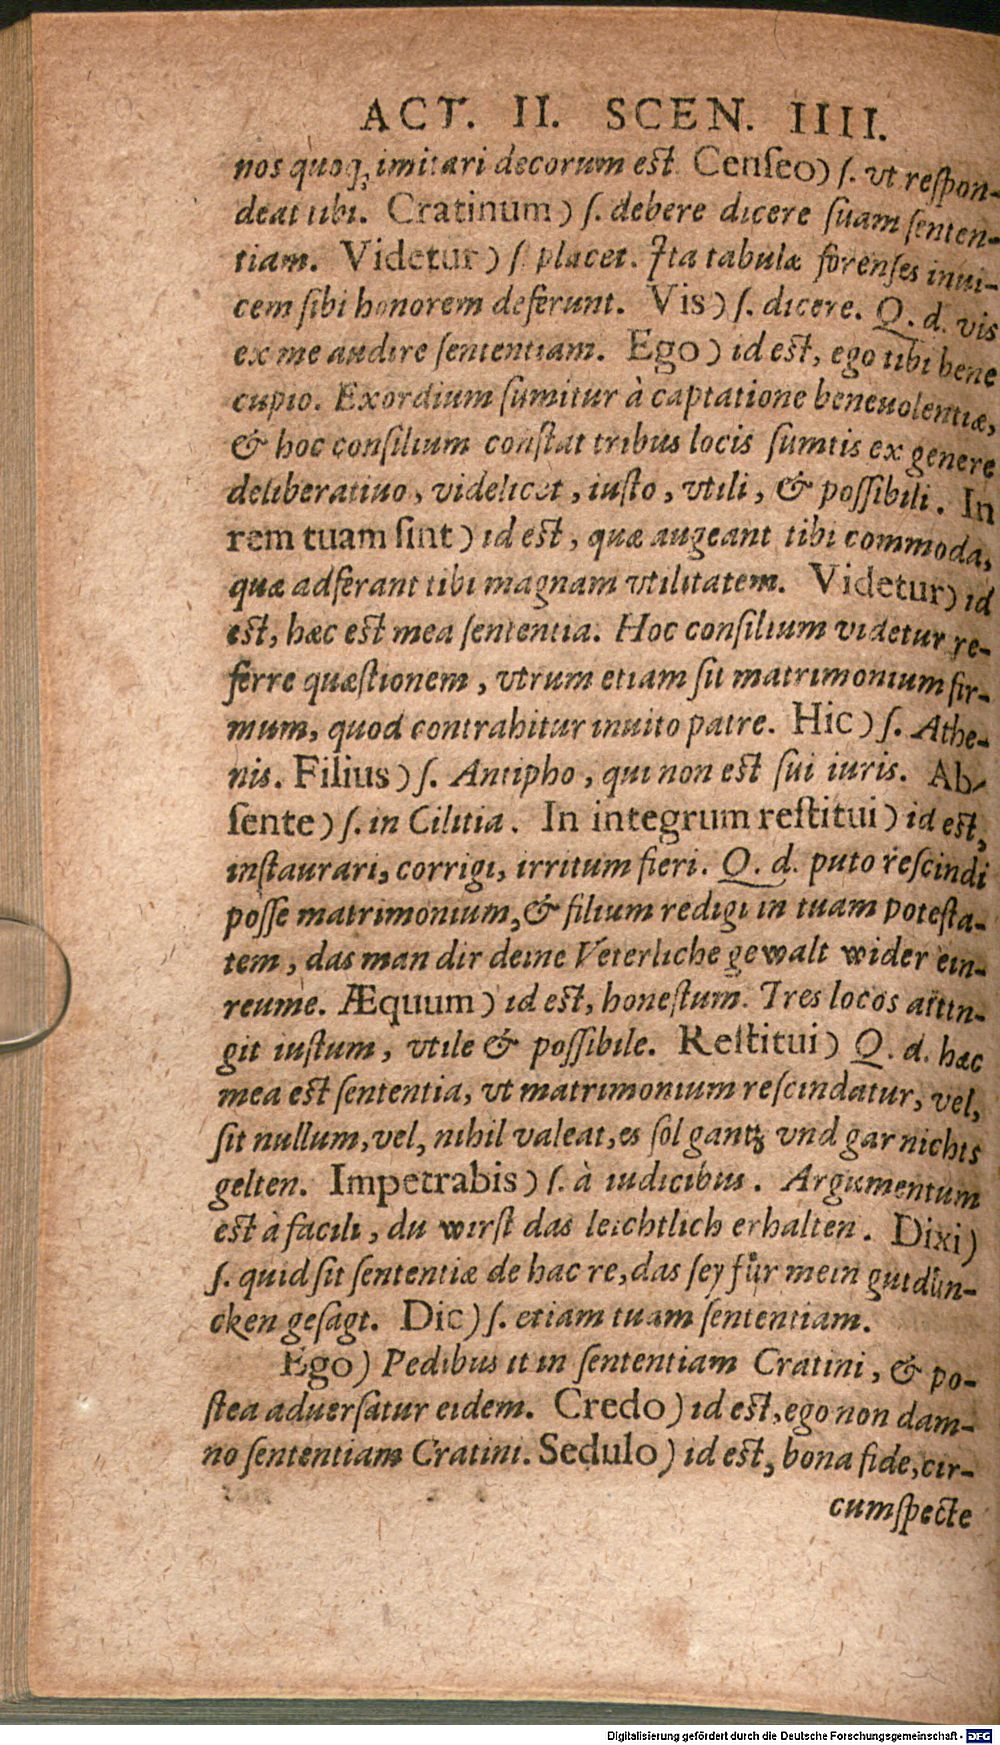 ACT. II. SCEN. IIII.
nos quoq; imitari decorum est. Censeo) ſ. vt respon-
deat tibi. Cratinum) ſ. debere dicere ſuam ſenten-
tiam. Videtur) ſ. placet. Ita tabulæ forenſes inui-
cem ſibi honorem deferunt. Vis) ſ. dicere. Q. d. vis
ex me audire ſententiam. Ego) id eſt, ego tibi bene
cupio. Exordium ſumitur à captatione beneuolentiæ,
& hoc conſilium conſtat tribus locis ſumtis ex genere
deliberatiuo, videlicet, iuſto, vtili, & poſſibili. In
rem tuam ſint) id eſt, quæ augeant tibi commoda,
quæ adferant tibi magnam vtilitatem. Videtur) id
eſt, hæc eſt mea ſententia. Hoc conſilium videtur re-
ferre quæſtionem, vtrum etiam ſit matrimonium fir-
mum, quod contrahitur inuito patre. Hic) ſ. Athe-
nis. Filius) ſ. Antipho, qui non eſt ſui iuris. Ab-
ſente) ſ. in Cilitia. In integrum reſtitui) id eſt,
inſtaurari, corrigi, irritum fieri. Q. d. puto reſcindi
poſſe matrimonium, & filium redigi in tuam poteſta-
tem, das man dir deine Veterliche gewalt wider ein-
reume. Æquum) id eſt, honeſtum. Tres locos attin-
git iuſtum, vtile & poſſibile. Reſtitui) Q. d. hæc
mea eſt ſententia, vt matrimonium reſcindatur, vel,
ſit nullum, vel, nihil valeat, es ſol gantz vnd gar nichts
gelten. Impetrabis) ſ. à iudicibus. Argumentum
eſt à facili, du wirſt das leichtlich erhalten. Dixi)
ſ. quid ſit ſententiæ de hac re, das ſey fuͤr mein gutduͤn-
cken geſagt. Dic) ſ. etiam tuam ſententiam.
Ego) Pedibus it in ſententiam Cratini, & po-
ſtea aduerſatur eidem. Credo) id eſt, ego non dam-
no ſententiam Cratini. Sedulo) id eſt, bona fide, cir-
cumſpecte
Digitalisierung gefördert durch die Deutsche Forschungsgemeinschaft - DFG